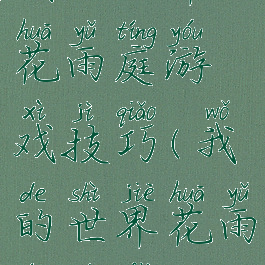 huā yǔ tíng yóu
花雨庭游
xì jì qiǎo wǒ
戏技巧(我
de shì jiè huā yǔ
的世界花雨